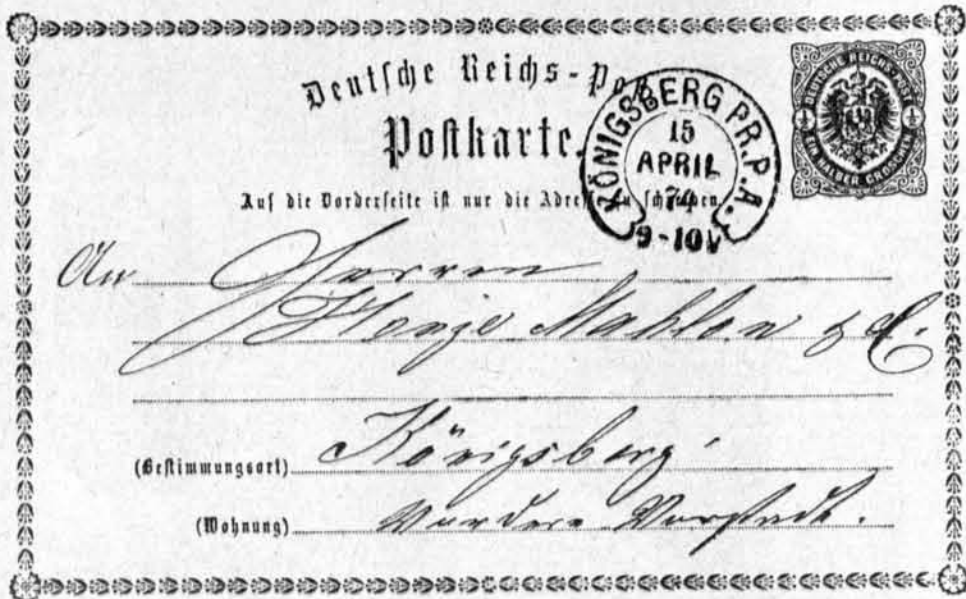 Deutsche Reichs-Post
Postkarte.
Auf die Vorderseite ist nur die Adresse zu schreiben.
KÖNIGSBERG PR. P. A.
15
APRIL
74
9-10V
DEUTSCHE REICHS-POST
½ ½
EIN HALBER GROSCHEN
An Herren
Mahlon & C.
(Bestimmungsort) Königsberg
(Wohnung) Vordere Vorstadt.